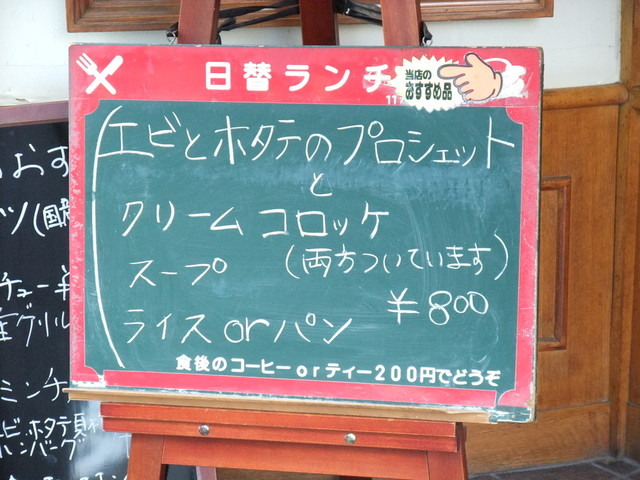 日替ランチ
当店の
おすすめ品
エビとホタテのプロシェット
と
クリームコロッケ
スープ (両方ついています)
ライス or パン ¥800
食後のコーヒーorティー200円でどうぞ
おす
ツ(国産
チュー¥
グリル
ミンチ
ビ・ホタテ
ハンバーグ